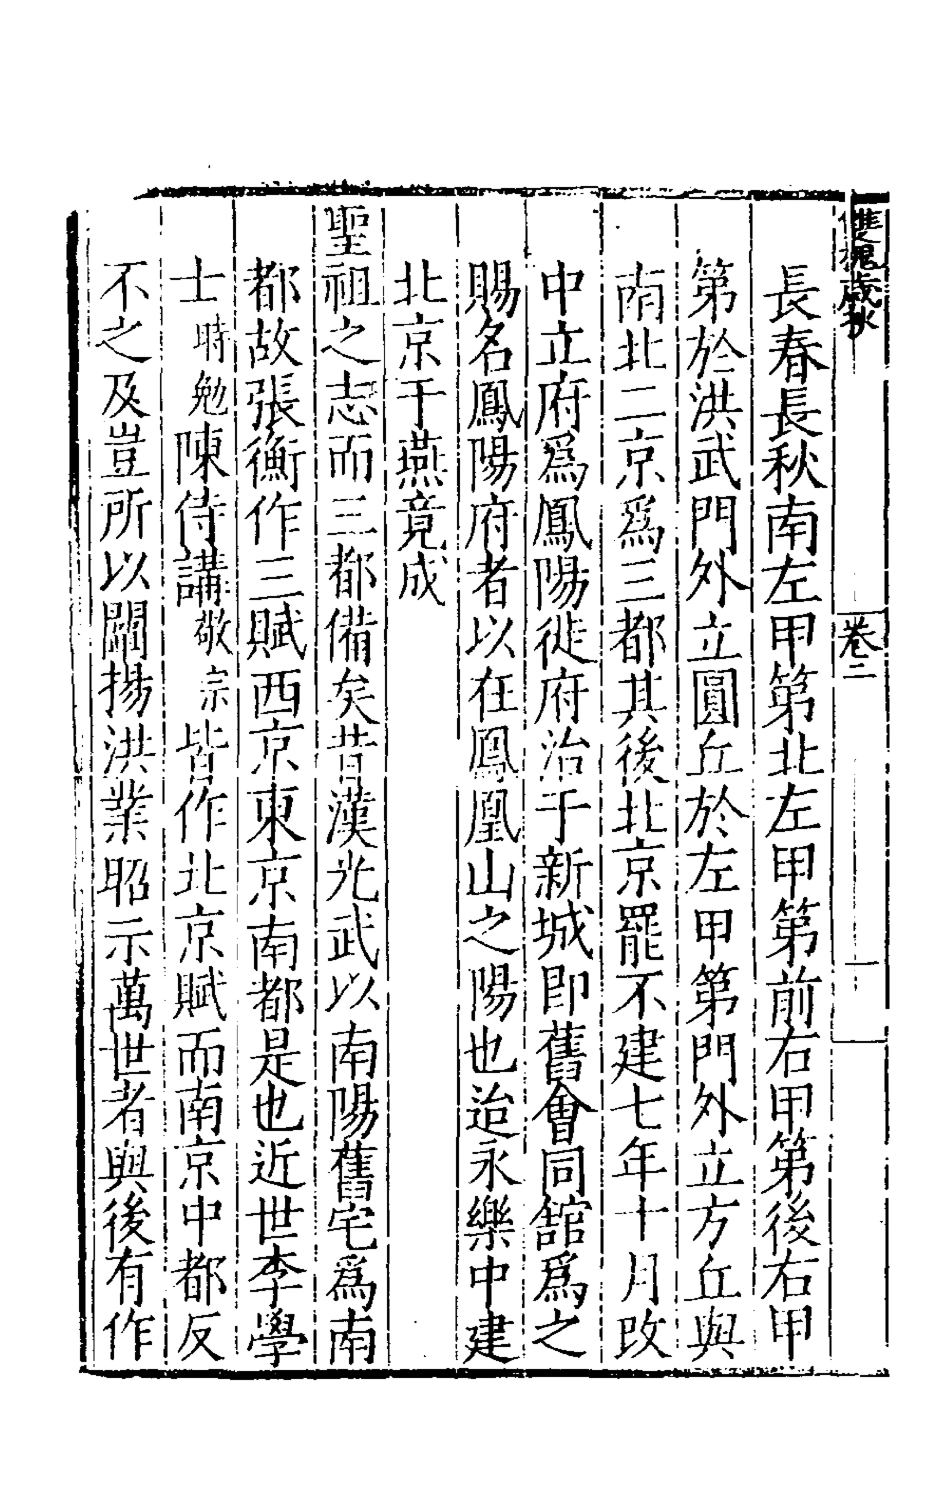 雙槐歲抄
卷二
一
長春長秋南左甲第北左甲第前右甲第後右甲
第於洪武門外立圓丘於左甲第門外立方丘與
南北二京爲三都其後北京罷不建七年十月改
中立府爲鳳陽徙府治于新城卽舊會同舘爲之
賜名鳳陽府者以在鳳凰山之陽也迨永樂中建
北京于燕竟成
聖祖之志而三都備矣昔漢光武以南陽舊宅爲南
都故張衡作三賦西京東京南都是也近世李學
士時勉陳侍講敬宗皆作北京賦而南京中都反
不之及豈所以闡揚洪業昭示萬世者與後有作